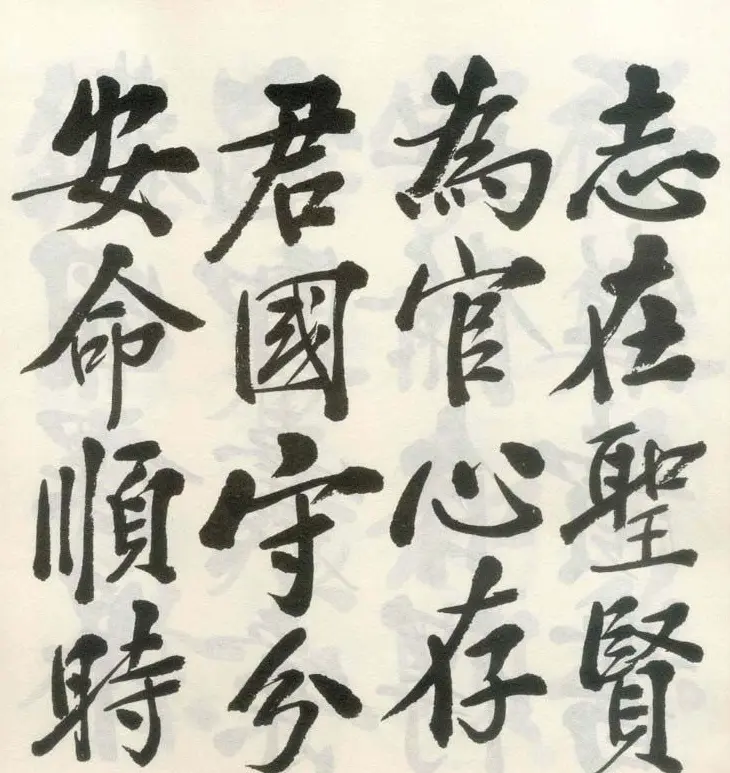 志在聖賢
為官心存
君國守分
安命順時